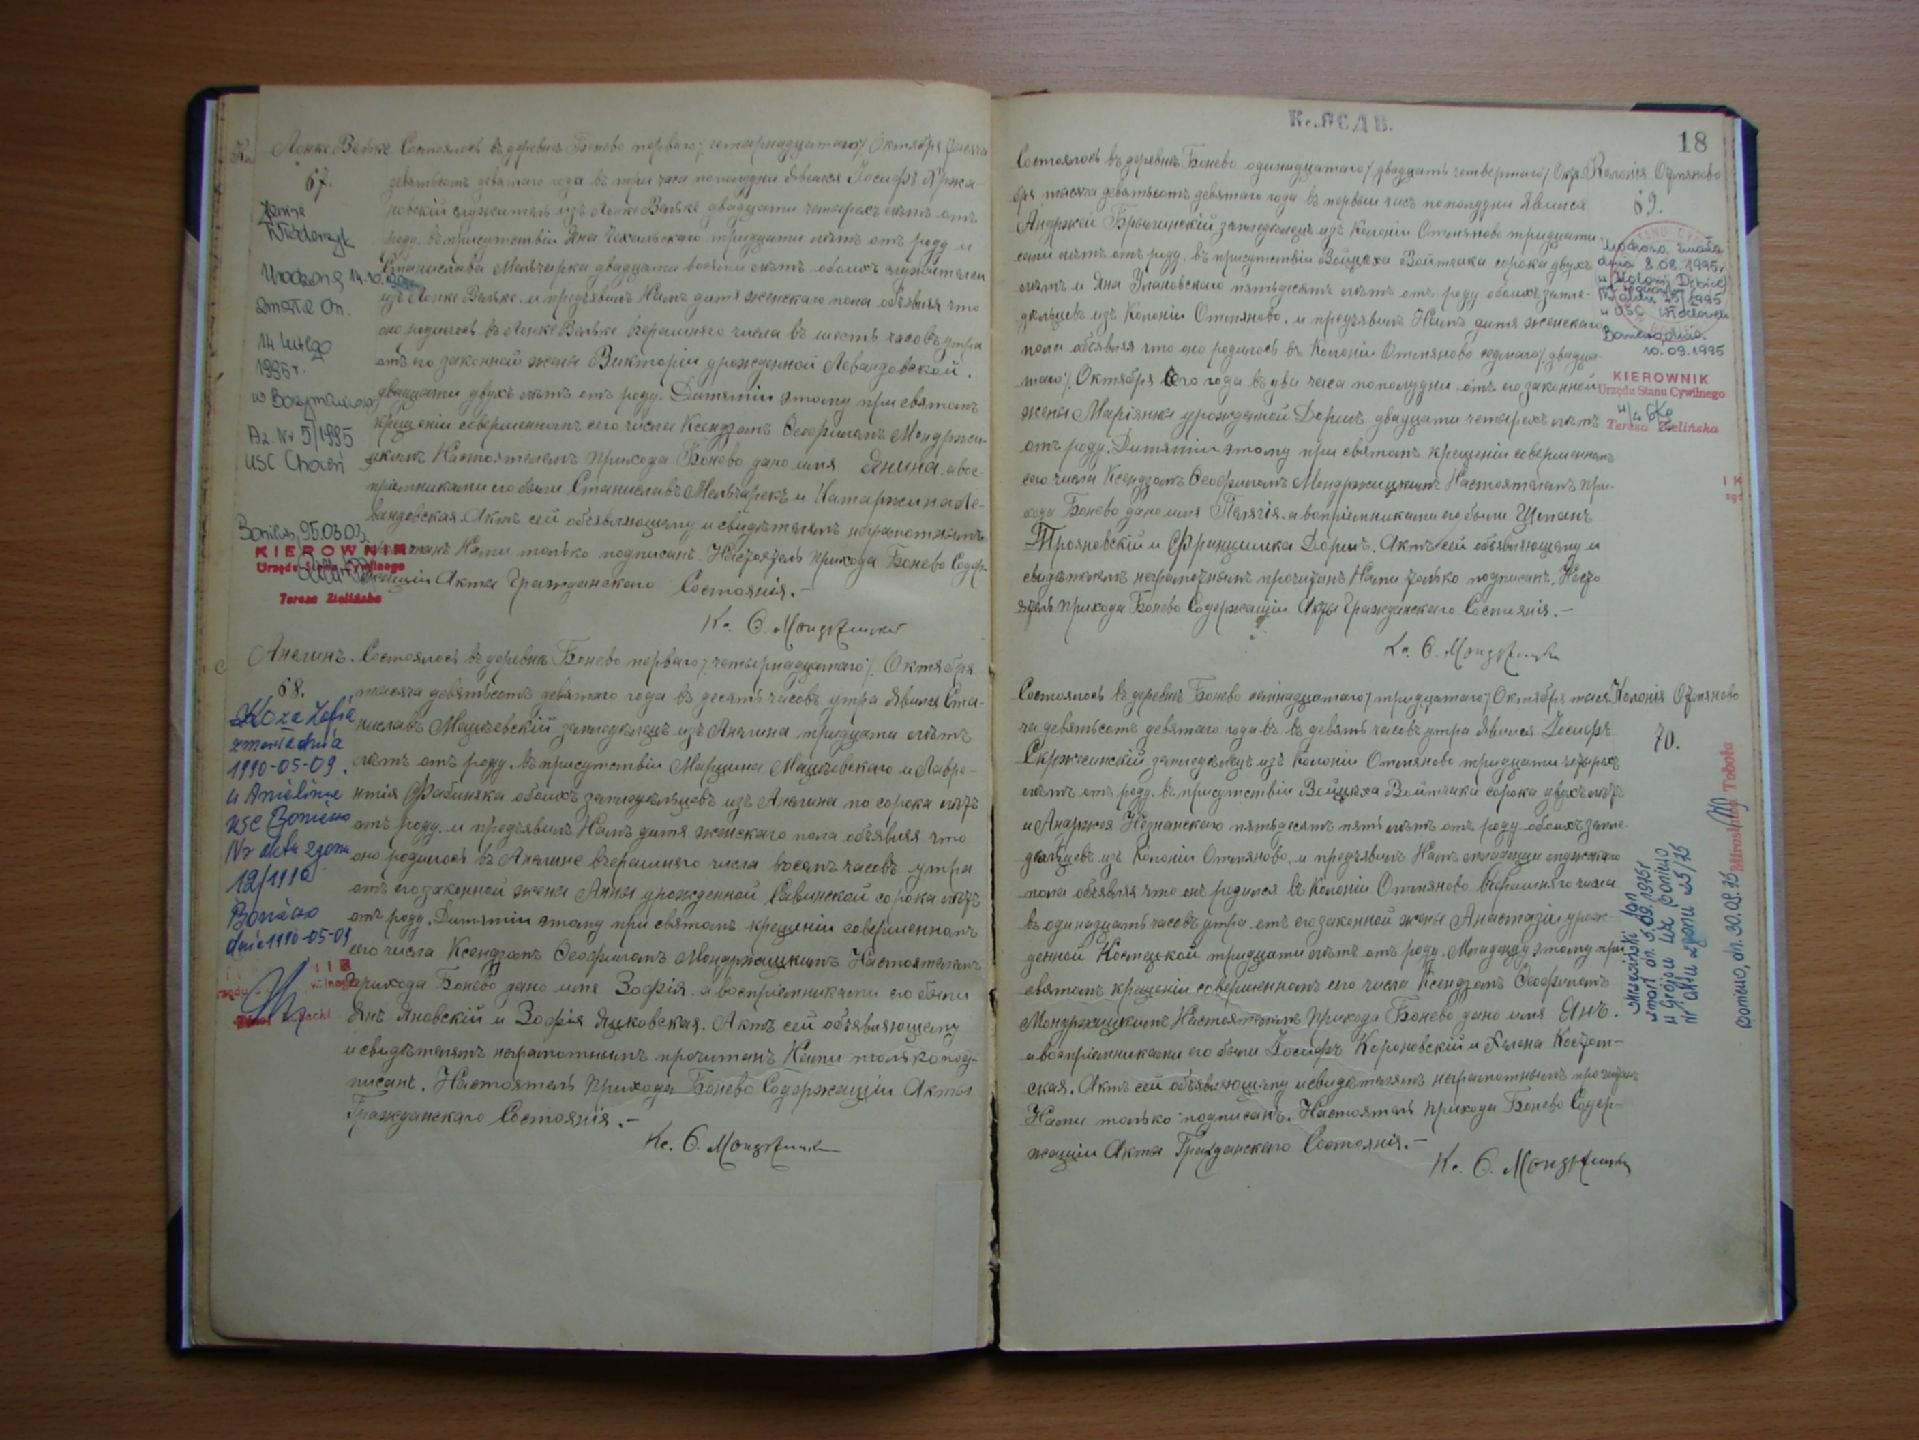 Лонке Вельке
67.
Состоялось въ деревнѣ Бонево перваго /четырнадцатаго/ Октября тысяча
девятьсотъ девятаго года въ три часа пополудни явился Іосифъ
новскій служитель изъ Лонке Вельке двадцати четырехъ лѣтъ отъ
роду, въ присутствіи Яна тридцати лѣтъ отъ роду и
Станислава Мельчарка двадцати восьми лѣтъ обоихъ служителей
изъ Лонке Вельке, и предъявилъ Намъ дитя женскаго пола объявляя что
оно родилось въ Лонке Вельке вчерашняго числа въ шесть часовъ утра
отъ его законной жены Викторіи урожденной Левандовской,
двадцати двухъ лѣтъ отъ роду. Дитятти этому при святомъ
крещеніи совершенномъ сего числа Ксендзомъ Ѳеофиломъ Мондржиц-
кимъ Настоятелемъ прихода Бонево дано имя Янина, а вос-
пріемниками его были Станиславъ Мельчарекъ и Катаржина Ле-
вандовская. Актъ сей объявляющему и свидѣтелямъ неграмотнымъ
прочитанъ Нами только подписанъ. Настоятель прихода Бонево Содер-
жащій Акты Гражданскаго Состоянія.-
Кс. Ѳ. Мондржицкій
Urodzona 14.10.
zmarła dn.
14 lutego
1995 r.
Az. Nr 5/1995
USC Choceń
Boniewo 95.03.03
KIEROWNIK
Urzędu Stanu Cywilnego
Teresa Zielińska
Анелинъ.
68.
Состоялось въ деревнѣ Бонево перваго /четырнадцатаго/ Октября
тысяча девятьсотъ девятаго года въ десять часовъ утра явился Ста-
ниславъ Мацѣевскій земледѣлецъ изъ Анелина тридцати
лѣтъ отъ роду, въ присутствіи Марцина Мацѣевскаго и Лавре-
нтія Фабиняка обоихъ земледѣльцевъ изъ Анелина по сорока лѣтъ
отъ роду, и предъявилъ Намъ дитя женскаго пола объявляя что
оно родилось въ Анелине вчерашняго числа восемь часовъ утра
отъ его законной жены Анны урожденной Савинской сорока лѣтъ
отъ роду. Дитятти этому при святомъ крещеніи совершенномъ
сего числа Ксендзомъ Ѳеофиломъ Мондржицкимъ Настоятелемъ
прихода Бонево дано имя Зофія, а воспріемниками его были
Янъ Яновскій и Зофія Яцковская. Актъ сей объявляющему
и свидѣтелямъ неграмотнымъ прочитанъ Нами только под-
писанъ. Настоятель прихода Бонево Содержащій Акты
Гражданскаго Состоянія.-
Кс. Ѳ. Мондржицкій
Koza Zofia
zmarła dnia
1990-05-09
w Anielinie
USC Boniewo
Nr aktu zgonu
12/1990
Boniewo
dnia 1990-05-09
Кс. Ѳ С Д В.
18
Колонія Отмяново
69.
Состоялось въ деревнѣ Бонево одинадцатаго /двадцать четвертаго/ Октя-
бря тысяча девятьсотъ девятаго года въ первый часъ пополудни явился
Андржей земледѣлецъ изъ Колоніи Отмяново тридцати
семи лѣтъ отъ роду, въ присутствіи Войцѣха Войтчака сорока двухъ
лѣтъ и Яна Улановскаго пятьдесятъ лѣтъ отъ роду обоихъ земле-
дѣльцевъ изъ Колоніи Отмяново, и предъявилъ Намъ дитя женскаго
пола объявляя что оно родилось въ Колоніи Отмяново седьмаго /двадца-
таго/ Октября сего года въ два часа пополудни отъ его законной
жены Маріянны урожденной Дорищъ двадцати четырехъ лѣтъ
отъ роду. Дитятти этому при святомъ крещеніи совершенномъ
сего числа Ксендзомъ Ѳеофиломъ Мондржицкимъ Настоятелемъ при-
хода Бонево дано имя Пелягія, а воспріемниками его были Щепанъ
Трояновскій и Францишка Дорищъ. Актъ сей объявляющему и
свидѣтелямъ неграмотнымъ прочитанъ Нами только подписанъ. Насто-
ятель прихода Бонево Содержащій Акты Гражданскаго Состоянія.-
Кс. Ѳ. Мондржицкій
zmarła
dnia 8.08.1995r.
w Kolonii Dębice
Nr aktu 25/1995
w USC Włocławek
Boniewo dnia
10.09.1995
KIEROWNIK
Urzędu Stanu Cywilnego
Teresa Zielińska
Колонія Отмяново
70.
Состоялось въ деревнѣ Бонево семнадцатаго /тридцатаго/ Октября тыся-
ча девятьсотъ девятаго года въ девять часовъ утра явился Іосифъ
земледѣлецъ изъ Колоніи Отмяново тридцати четырехъ
лѣтъ отъ роду, въ присутствіи Войцѣха Войтчака сорока двухъ лѣтъ
и Андржея пятьдесятъ пять лѣтъ отъ роду обоихъ земле-
дѣльцевъ изъ Колоніи Отмяново, и предъявилъ Намъ младенца мужскаго
пола объявляя что онъ родился въ Колоніи Отмяново вчерашняго числа
въ одинадцать часовъ утра, отъ его законной жены Анастазіи урож-
денной тридцати лѣтъ отъ роду. Младенцу этому при
святомъ крещеніи совершенномъ сего числа Ксендзомъ Ѳеофиломъ
Мондржицкимъ Настоятелемъ Прихода Бонево дано имя Янъ.
а воспріемниками его были Іосифъ Короновскій и Хелена
ская. Актъ сей объявляющему и свидѣтелямъ неграмотнымъ прочитанъ
Нами только подписанъ. Настоятель прихода Бонево Содер-
жащій Акты Гражданскаго Состоянія.-
Кс. Ѳ. Мондржицкій
Jan
zmarł dn. 5.09.1975r
USC Boniewo
nr aktu zgonu 25/75
Boniewo, dn. 30.09.75
Mirosława Tobota